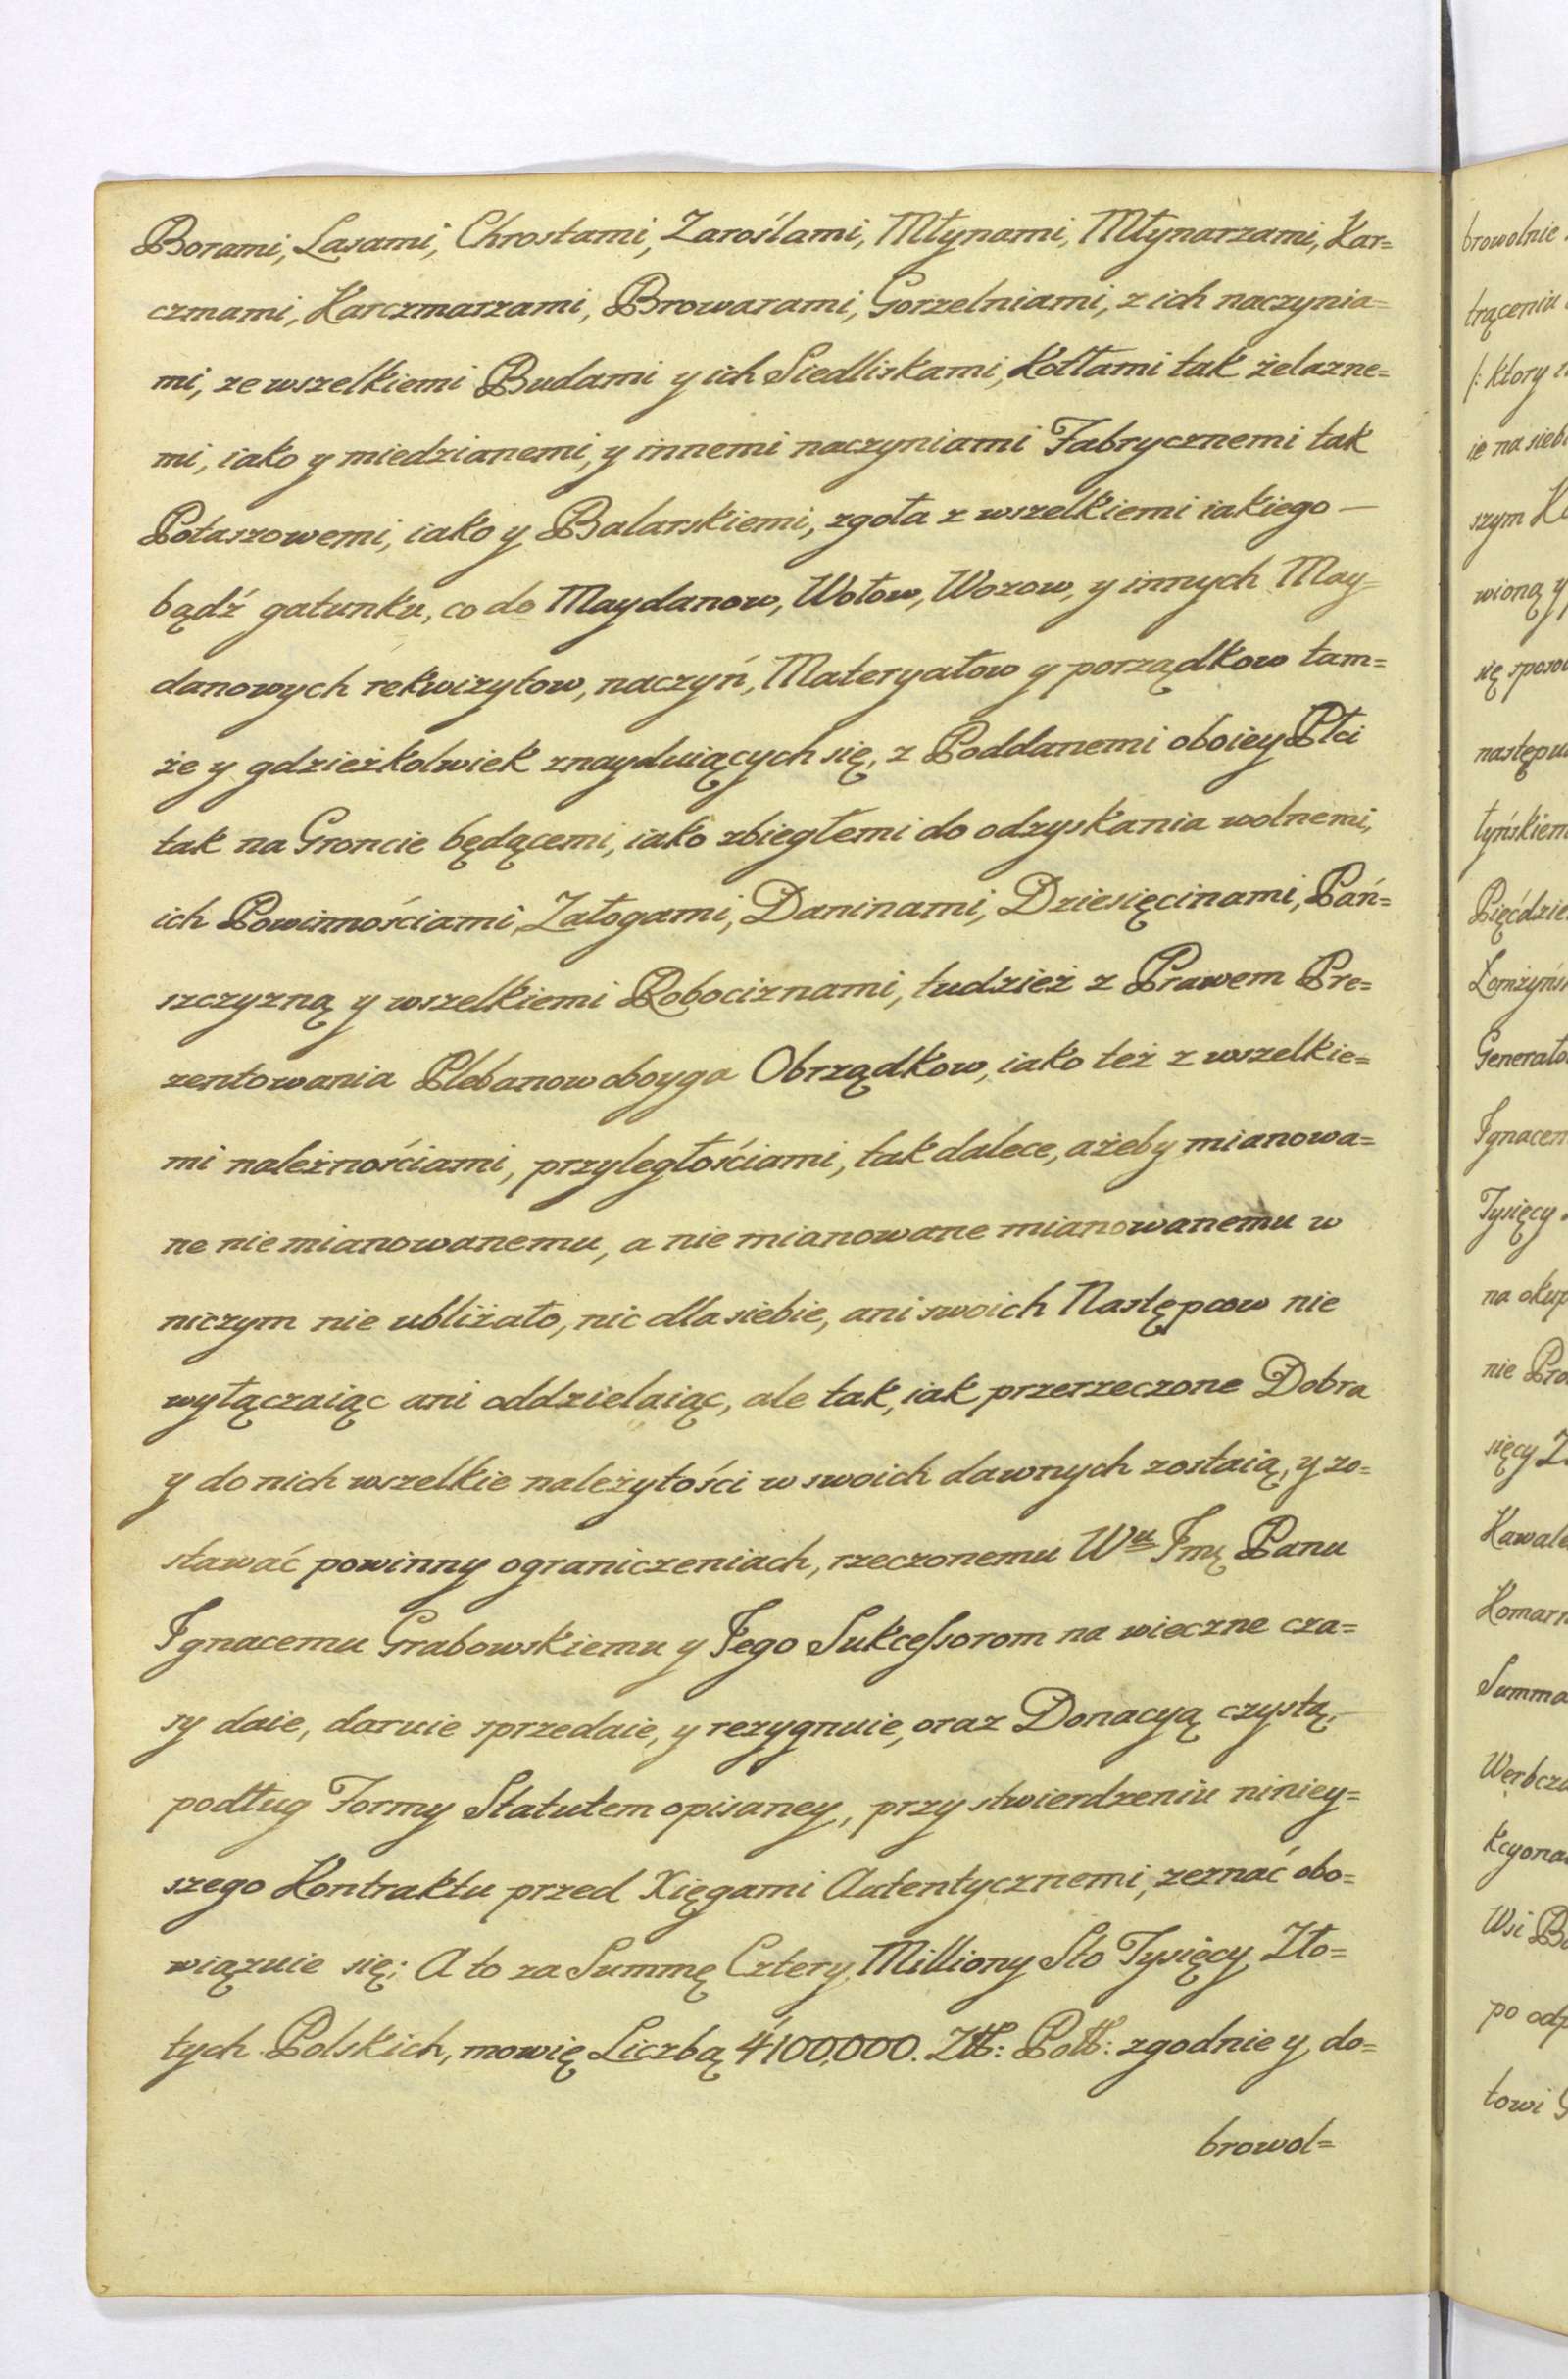 Borami, Lasami, Chrostami, Zaroślami, Młynami, Młynarzami, Kar=
czmami, Karczmarzami, Browarami, Gorzelniami, z ich naczynia=
mi, ze wszelkiemi Budami y ich Siedliskami, Kotłami tak żelazne=
mi, iako y miedzianemi, y innemi naczyniami Fabrycznemi tak
Potaszowemi, iako y Balarskiemi, zgoła z wszelkiemi iakiego —
bądź gatunku, co do Maydanow, Wołow, Wozow, y innych May=
danowych rekwizytow, naczyń, Materyałow y porządkow tam=
że y gdzieżkolwiek znayduiących się, z Poddanemi oboiey Płci
tak na Groncie będącemi, iako zbiegłemi do odzyskania wolnemi,
ich Powinnościami, Załogami, Daninami, Dziesięcinami, Pań=
szczyzną y wszelkiemi Robociznami, tudzież z Prawem Pre=
zentowania Plebanow oboyga Obrządkow, iako też z wszelkie=
mi należnościami, przyległościami, tak dalece, ażeby mianowa=
ne nie mianowanemu, a nie mianowane mianowanemu w
niczym nie ubliżało, nic dla siebie, ani swoich Następcow nie
wyłączaiąc ani oddzielaiąc, ale tak, iak przerzeczone Dobra
y do nich wszelkie należytości w swoich dawnych zostaią, y zo=
stawać powinny ograniczeniach, rzeczonemu Wu Jmą Panu
Ignacemu Grabowskiemu y Jego Sukcessorom na wieczne cza=
sy daie, daruie sprzedaie, y rezygnuie, oraz Donacyą czystą,
podług Formy Statutem opisaney, przy stwierdzeniu niniey=
szego Kontraktu przed Xięgami Autentycznemi, zeznać obo=
wiązuie się; A to za Summę Cztery Milliony Sto Tysięcy Zło=
tych Polskich, mowię Liczbą 4'100,000. Złł: Poll: zgodnie y do=
browol=
browolnie
trąceniu
/: ktory
ie na sieb
szym
wioną y
się
następu
tyńskiem
Pięćdzie
Łomżyńs
Generało
Ignacem
Tysięcy
na okup
nie
sięcy
Kawale
Komarn
Summa
kcyona
Wsi
po odp
towi